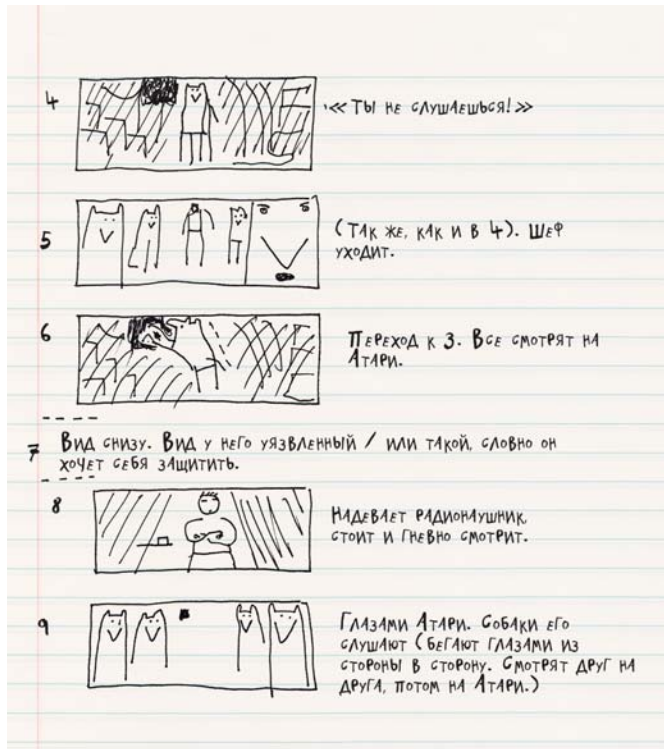 4
«Ты не слушаешься!»
5
(Так же, как и в 4). Шеф
уходит.
6
Переход к 3. Все смотрят на
Атари.
7
Вид снизу. Вид у него уязвленный / или такой, словно он
хочет себя защитить.
8
Надевает радионаушник,
стоит и гневно смотрит.
9
Глазами Атари. Собаки его
слушают (бегают глазами из
стороны в сторону. Смотрят друг на
друга, потом на Атари.)